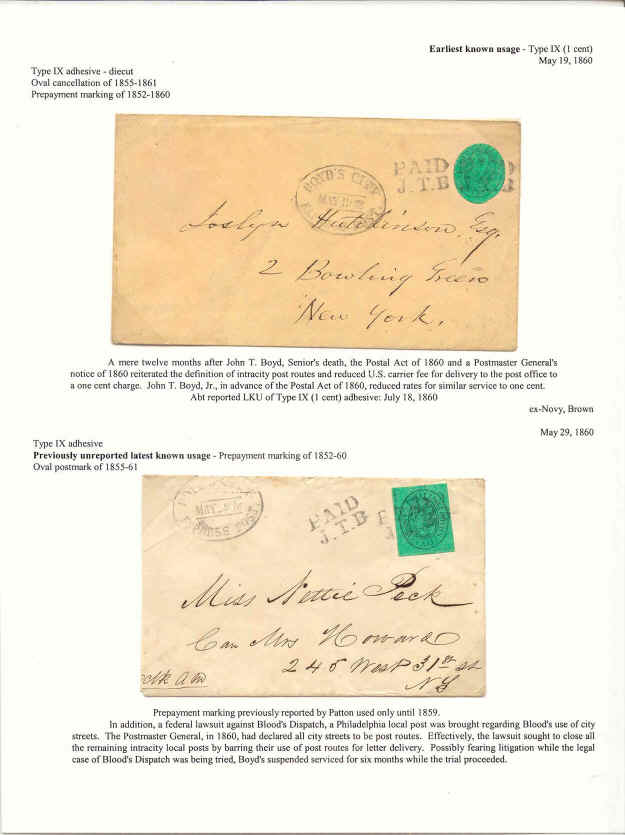 Earliest known usage - Type IX (1 cent)
May 19, 1860
Type IX adhesive - diecut
Oval cancellation of 1855-1861
Prepayment marking of 1852-1860
BOYD'S CITY
PAID
J.T.B
Joslyn Hutchinson, Esq.
2 Bowling Green
New York.
A mere twelve months after John T. Boyd, Senior's death, the Postal Act of 1860 and a Postmaster General's
notice of 1860 reiterated the definition of intracity post routes and reduced U.S. carrier fee for delivery to the post office to
a one cent charge. John T. Boyd, Jr., in advance of the Postal Act of 1860, reduced rates for similar service to one cent.
Abt reported LKU of Type IX (1 cent) adhesive: July 18, 1860
ex-Novy, Brown
May 29, 1860
Type IX adhesive
Previously unreported latest known usage - Prepayment marking of 1852-60
Oval postmark of 1855-61
MAY
EXPRESS POST
PAID
J.T.B
Miss Nettie Peck
Care Mrs Howard
245 West 31st st
NY
Prepayment marking previously reported by Patton used only until 1859.
In addition, a federal lawsuit against Blood's Dispatch, a Philadelphia local post was brought regarding Blood's use of city
streets. The Postmaster General, in 1860, had declared all city streets to be post routes. Effectively, the lawsuit sought to close all
the remaining intracity local posts by barring their use of post routes for letter delivery. Possibly fearing litigation while the legal
case of Blood's Dispatch was being tried, Boyd's suspended serviced for six months while the trial proceeded.